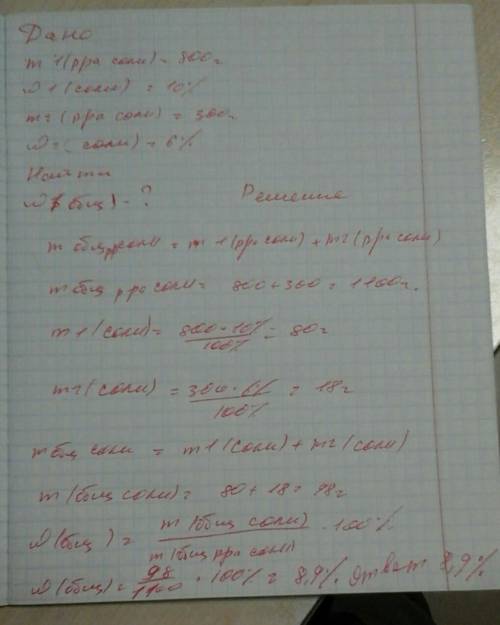 Дано
m1(рра соли) = 800г
ω1(соли) = 10%
m2(рра соли) = 300г
ω2(соли) = 6%
Найти
ω(общ) - ? Решение
m общ рр соли = m1(рра соли) + m2(рра соли)
m общ рра соли = 800 + 300 = 1100г.
m1(соли) = 800 · 10% / 100% = 80г
m2(соли) = 300 · 6% / 100% = 18г
m общ соли = m1(соли) + m2(соли)
m(общ соли) = 80 + 18 = 98г
ω(общ) = m(общ соли) / m(общ рра соли) · 100%
ω(общ) = 98 / 1100 · 100% = 8,9%. Ответ 8,9%